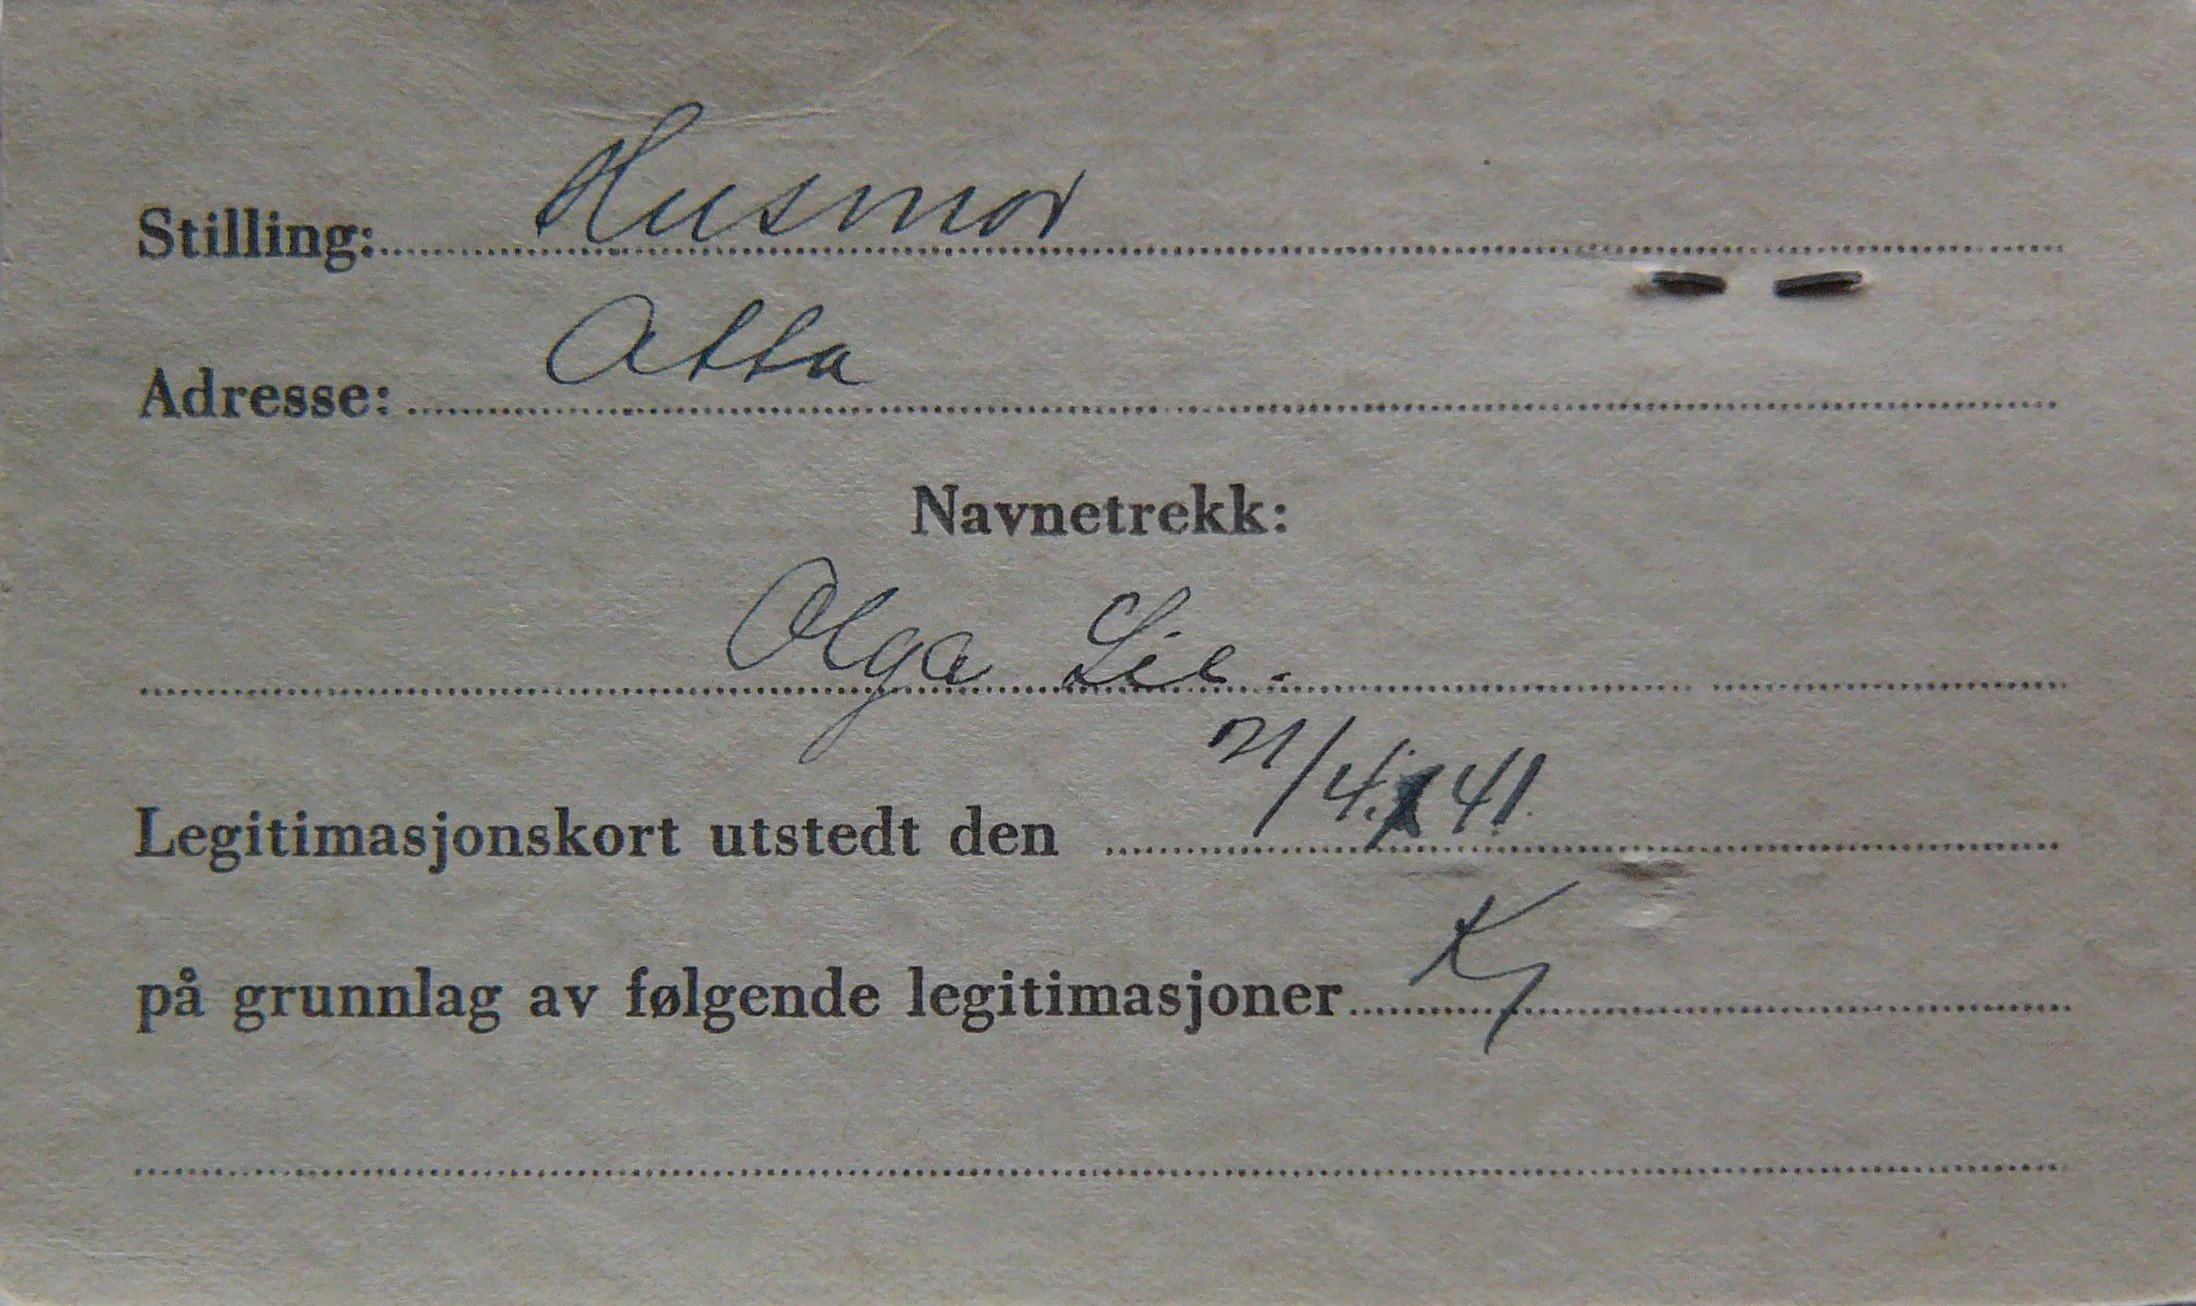 Stilling: Husmor
Adresse: Otta
Navnetrekk:
Olga Lie.
Legitimasjonskort utstedt den 21/4. 41.
på grunnlag av følgende legitimasjoner Kj